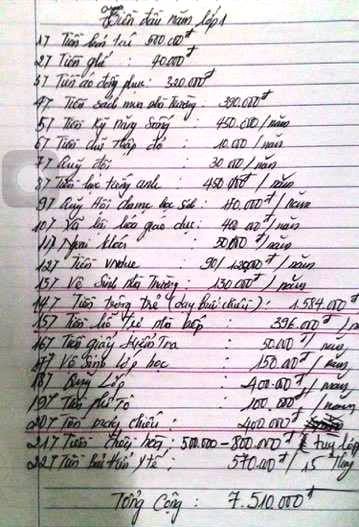 Tiền đầu năm lớp 1
1) Tiền bán trú 500.000đ
2) Tiền ghế : 40.000đ
3) Tiền áo đồng phục : 320.000đ
4) Tiền sách mua nhà trường : 390.000đ
5) Tiền kỹ năng sống : 450.000 / năm
6) Tiền chữ thập đỏ : 10.000 / năm
7) Quỹ đội : 30.000 / năm
8) Tiền học tiếng anh : 450.000đ / năm
9) Quỹ Hội học sinh : 150.000đ / năm
10) Xã hội hóa giáo dục : 400.000đ / năm
11) Ngoại khóa : 50.000đ / năm
12) Tiền : 90/ đ / năm
13) Vệ Sinh nhà Trường : 130.000đ / năm
14) Tiền trông trẻ (dạy buổi chiều) : 1.584.000đ
15) Tiền hỗ Trợ nhà bếp : 396.000đ / năm
16) Tiền giấy kiểm Tra : 50.000đ / năm
17) Vệ Sinh lớp học : 150.000đ / năm
18) Quỹ Lớp : 400.000đ / năm
19) Tiền phô Tô : 100.000đ / năm
20) Tiền chiếu : 400.000đ
21) Tiền : 500.000 - 800.000đ ( tùy lớp
22) Tiền bảo hiểm Y tế : 570.000đ / 15 Tháng
Tổng Cộng : 7.510.000đ